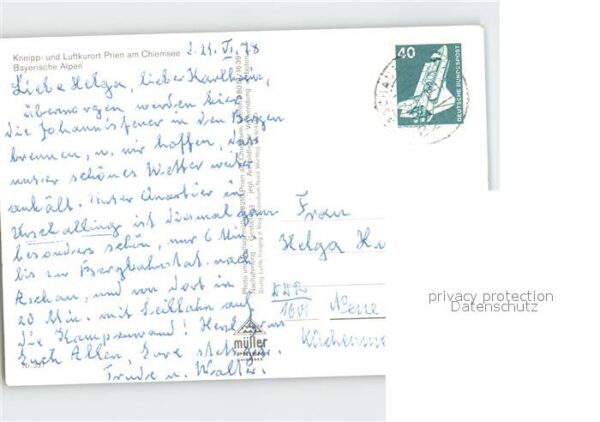 Kneipp- und Luftkurort Prien am Chiemsee
Bayerische Alpen
z. 21. VI. 78
Liebe Helga, lieber Karlheinz,
übermorgen werden hier
die Johannisfeuer in den Bergen
brennen, u. wir hoffen, dass
unser schönes Wetter weiter
anhält. Unser Quartier in
Urschalling ist diesmal ganz
besonders schön, nur 6 Min.
bis zur Bergbahnstat. nach
Aschau, und von dort in
20 Min. mit Seilbahn auf
die Kampenwand! Herzl.
Euch Allen, Eure
Trude u. Walter.
müller
40
DEUTSCHE BUNDESPOST
Frau
Helga
DDR
1601 Neue
privacy protection
Datenschutz